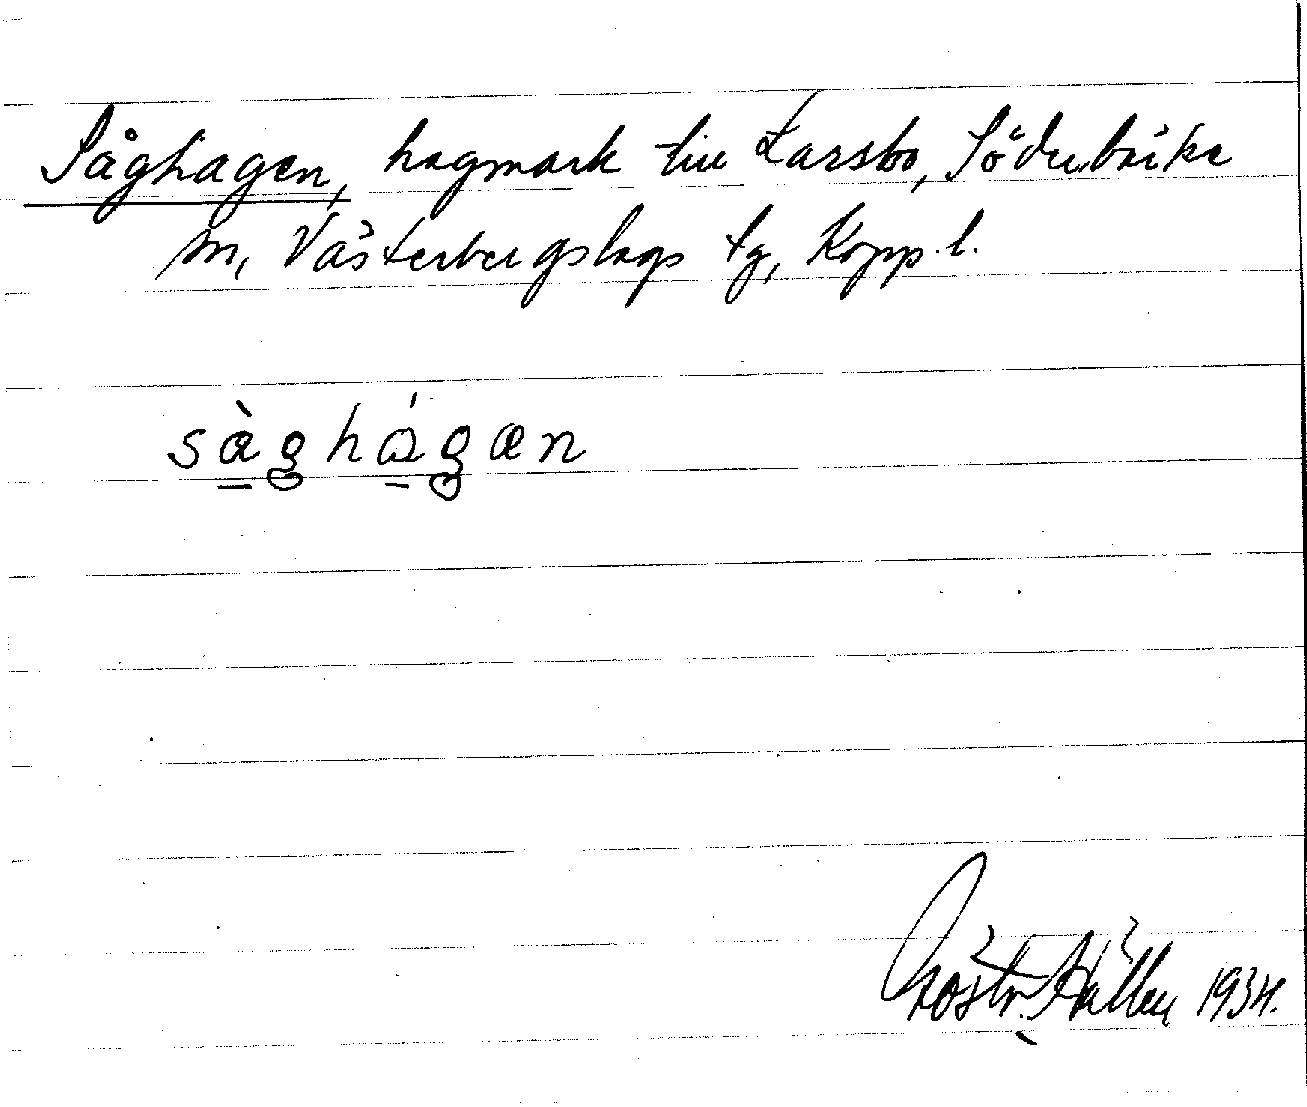 Såghagen, hagmark till Larsbo, Söderbärke
sn, Västerbergslags tg, Kopp. l.
sàghágæn
1934.